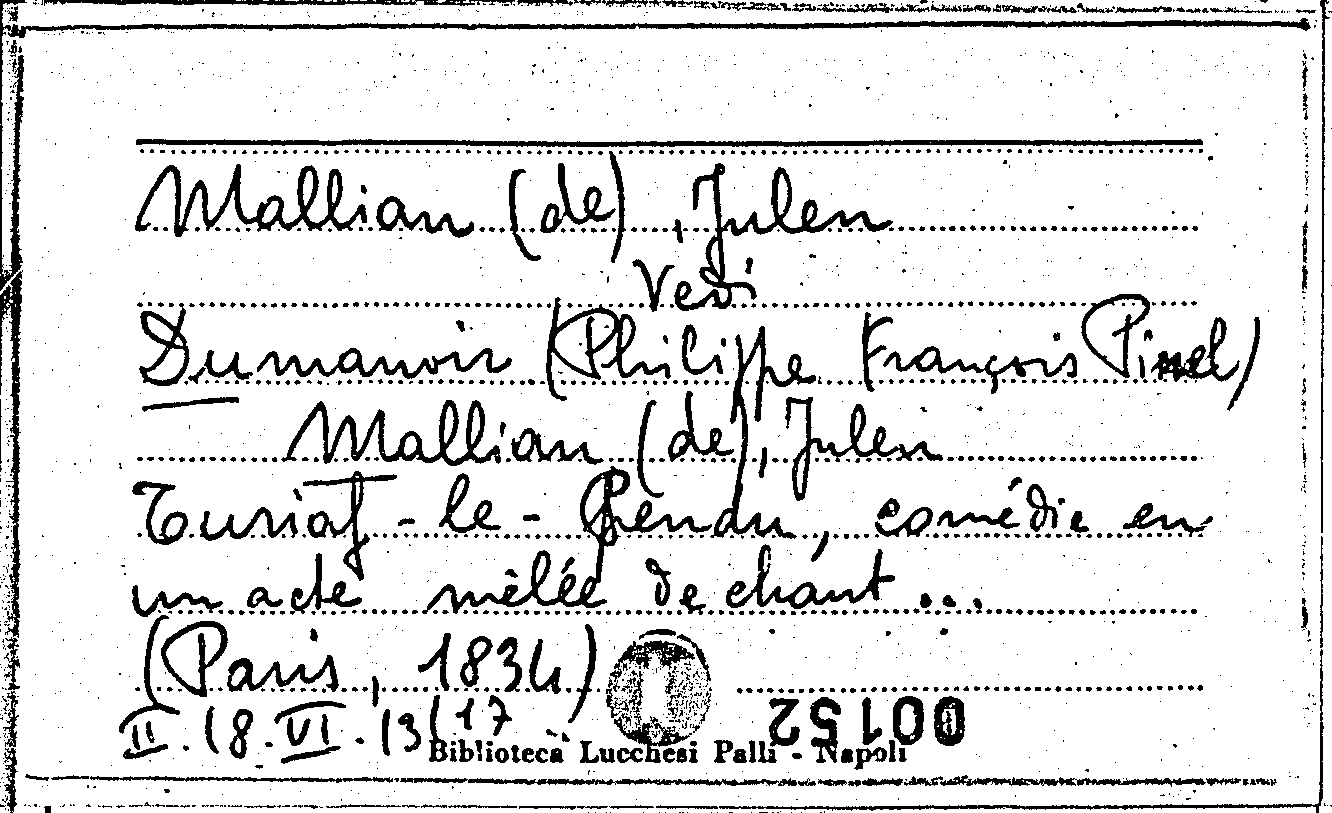 Mallian (de), Julen
Vedi
Dumanoir (Philippe François Pinel)
Mallian (de), Julen
Turiaf-le-Pendu, comédie en
un acte mêlée de chant...
(Paris, 1834)
II. (8. VI. 13(17
00152
Biblioteca Lucchesi Palli - Napoli